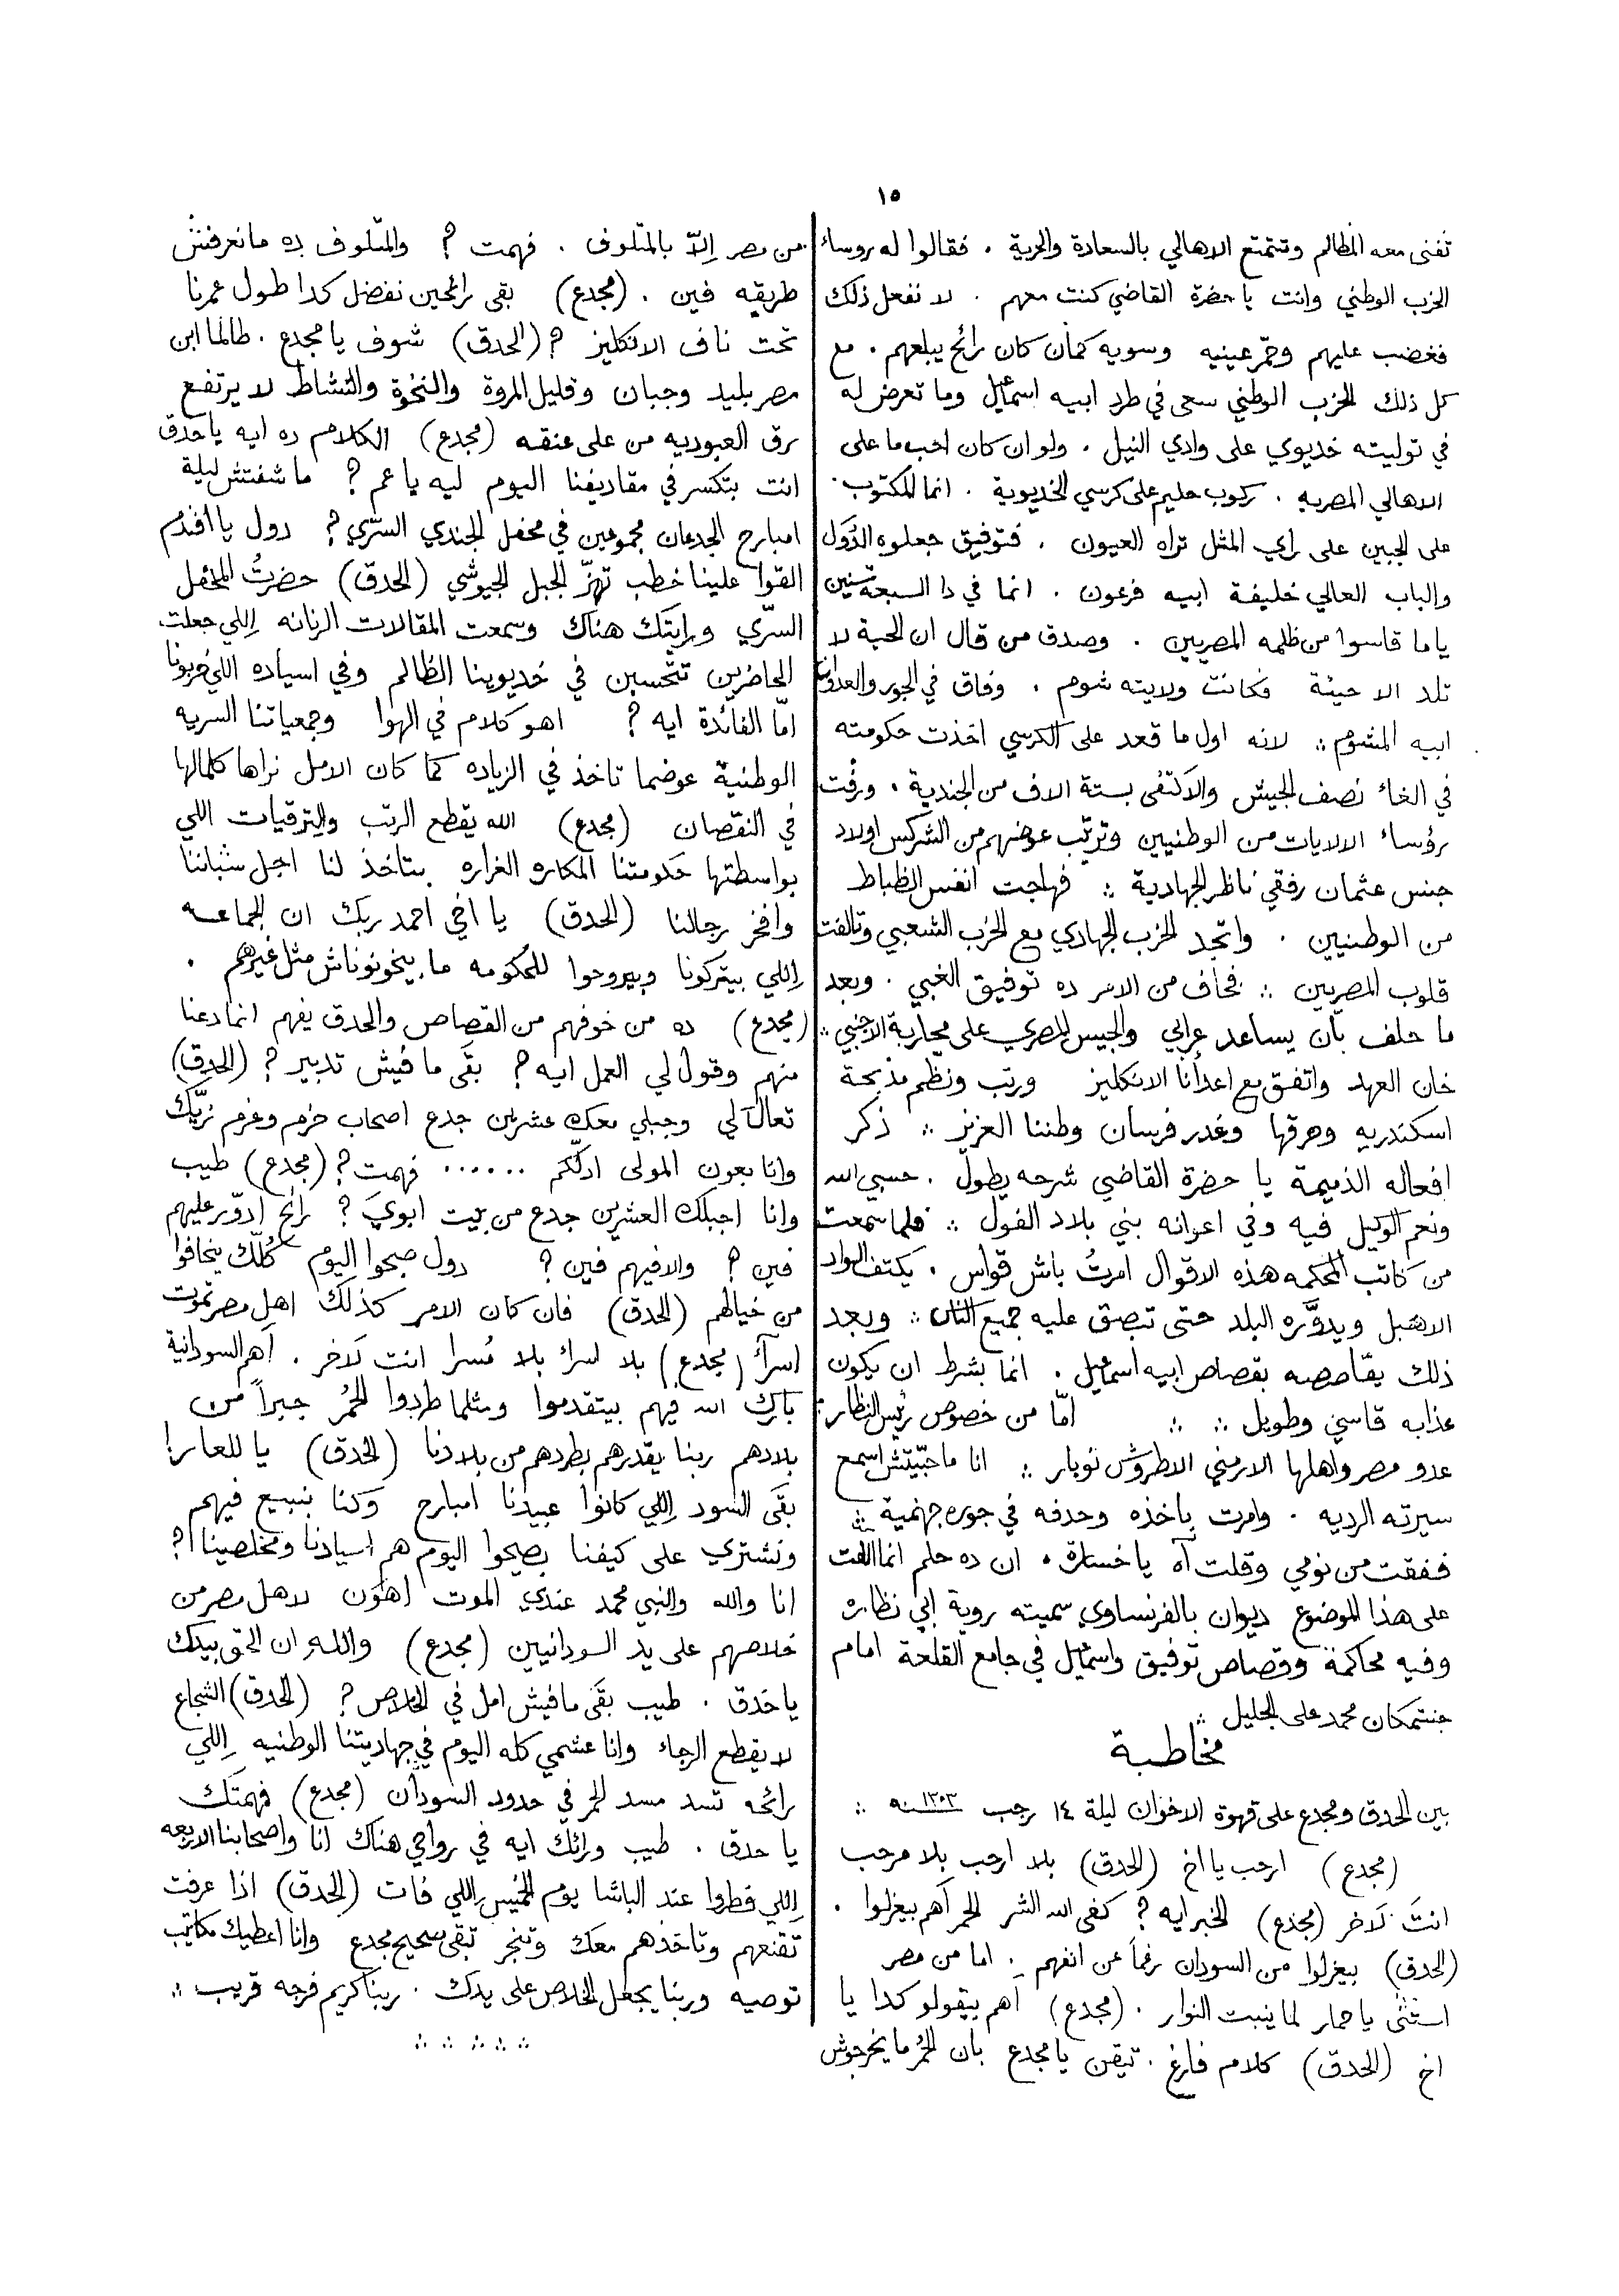 ١٥
تفنى معه المظالم وتتمتع الاهالي بالسعادة والحرية . فقالوا له روساء
الحزب الوطني وانت يا حضرة القاضي كنت معهم . لا نفعل ذلك
فغضب عليهم وحمّر عينيه وسويه كمان كان رائح يبلعهم . مع
كل ذلك الحزب الوطني سعى في طرد ابيه اسمعيل وما تعرض له
في توليته خديوي على وادي النيل . ولو ان كان احب ما على
الاهالي المصريه . ركوب حليم على كرسي الخديوية . انما المكتوب
على الجبين على راي المثل تراه العيون . فتوفيق جعلوه الدُوَل
والباب العالي خليفة ابيه فرعون . انما في دا السبعة سنين
ياما قاسوا من ظلمه المصريين . وصدق من قال ان الحية لا
تلد الا حيّة فكانت ولايته شوم . وفاق في الجور والعدوان
ابيه المشوم ∴ لانه اول ما قعد على الكرسي اخذت حكومته
في الغاء نصف الجيش والاكتفى بستة الاف من الجندية . ورفت
رؤساء الالايات من الوطنيين وترتّب عوضهم من الشركس اولاد
جنس عثمان رفقي ناظر الجهادية ∴ فهاجت انفس الظباط
من الوطنيين . واتّحد الحزب الجهادي مع الحزب الشعبي وتالفت
قلوب المصريين ∴ فخاف من الامر ده توفيق الغبي . وبعد
ما حلف بأن يساعد عرابي والجيس المصري على محاربة الاجنبي ∴
خان العهد واتفق مع اعدأنا الانكليز ورتب ونظّم مذبحة
اسكندريه وحرقها وغدر فرسان وطننا العزيز ∴ ذكر
افعاله الذميمة يا حضرة القاضي شرحه يطول . حسبي الله
ونعم الوكيل فيه وفي اعوانه بني بلاد الفول ∴ فلما سمعت
من كاتب المحكمه هذه الاقوال امرتُ باش قواس . يكتف الواد
الاهبل ويدوّره البلد حتى تبصق عليه جميع الناس ∴ وبعد
ذلك يقاصصه بقصاص ابيه اسمعيل . انما بشرط ان يكون
عذابه قاسي وطويل ∴ ∴ امّا من خصوص رئيس النظار
عدو مصر واهلها الارمني الاطروش نوبار ∴ انا ما حبّيتش اسمع
سيرته الرديه . وامرت بأخذه وحدفه في جوره جهنمية ∴
ففقت من نومي وقلت آه يا خسارة . ان ده حلم انما الفت
على هذا الموضوع ديوان بالفرنساوي سميته روية ابي نظاره
وفيه محاكمة وقصاص توفيق واسمعيل في جامع القلعة امام
جنتمكان محمد على الجليل ∴
مخاطبة
بين الحدق ومجدع على قهوة الاخوان ليلة ١٤ رجب سنه ١٣٠٣ ∴
(مجدع) ارحب يا اخ (الحدق) بلا ارحب بلا مرحب
انتَ لَاخر (مجدع) الخبر ايه ? كفى الله الشر الحمر آهم بيعزلوا .
(الحدق) بيعزلوا من السودان رغماً عن انفهم . اما من مصر
استنّى يا حمار لما ينبت النوار . (مجدع) اهم بيقولو كدا يا
اخ (الحدق) كلام فارغ . تيقن يا مجدع بان الحُمر ما يخرجوش
من مصر اِلاّ بالمتلوف . فهمت ? والمتلوف ده مانعرفش
طريقه فين . (مجدع) بقى رائحين نفضل كدا طول عمرنا
تحت ناف الانكليز ? (الحدق) شوف يا مجدع . طالما ابن
مصر بليد وجبان وقليل المروة والنخوة والنشاط لا يرتفع
رق العبوديه من على عنقه (مجدع) الكلام ده ايه يا حدق
انت بتكسر في مقاديفنا اليوم ليه يا عم ? ما شفتش ليلة
امبارح الجدعان مجموعين في محفل الجندي السرّي ? دول يا افندم
القوا علينا خطب تهزّ الجبل الجيوشي (الحدق) حضرتُ المحفل
السرّي ورايتك هناك وسمعت المقالات الرنانه اِللي جعلت
الحاضرين تتحّمس في خديوينا الظالم وفي اسياده اللي خربونا
امّا الفائدة ايه ? اهو كلام في الهوا وجمعياتنا السريه
الوطنية عوضما تاخذ في الزياده كما كان الامل نراها كلمالها
في النقصان (مجدع) الله يقطع الرتب والترقيات اللي
بواسطتها حكومتنا المكاره الغراره بتاخذ لنا اجل شباننا
وافخر رجالنا (الحدق) يا اخي احمد ربك ان الجماعه
اِللي بيتركونا وبيروحوا للحكومه ما بيخونوناش مثل غيرهم .
(مجدع) ده من خوفهم من القصاص والحدق يفهم انما دعنا
منهم وقول لي العمل ايه ? بقَى ما فيش تدبير ? (الحدق)
تعالَ لي وجبلي معك عشرين جدع اصحاب حزم وعزم زيّك
وانا بعون المولى ادلّكم ...... فهمت ? (مجدع) طيب
وانا اجبلك العشرين جدع من بيت ابويَ ? رائح ادوّر عليهم
فين ? والاقيهم فين ? دول صبحوا اليوم كُلّك يخافوا
من خيالهم (الحدق) فان كان الامر كذلك اهل مصر تموت
اسرآ (مجدع) بلا اسراء بلا مُسرا انت لَاخر . آهم السودانية
بارك الله فيهم بيتقدموا ومثلما طردوا الحُمر جبراً من
بلادهم ربنا يقدرهم بطردهم من بلادنا (الحدق) يا للعار!
بقَى السود اِللي كانوا عبيدنا امبارح وكنا بنبيع فيهم
ونشتري على كيفنا يصبحوا اليوم هم اسيادنا ومخلصينا !?
انا والله والنبي محمد عندي الموت اهوَن لاهل مصر من
خلاصهم على يد السودانيين (مجدع) والله ان الحق بيدك
ياحدق . طيب بقَى مافيش امل في الخلاص ? (الحدق) الشجاع
لا يقطع الرجاء وانا عشمي كله اليوم في جهاديتنا الوطنيه اِللي
رائحه تسد مسد الحمر في حدود السودان (مجدع) فهمتك
يا حدق . طيب ورائك ايه في رواحي هناك انا واصحابنا الاربعه
اِللي فطروا عند الباشا يوم الخميس اللي فات (الحدق) اذا عرفت
تقنعهم وتاخذهم معك وتنجر تبقى صحيح مجدع وانا اعطيك مكاتيب
توصيه وربنا يجعل الخلاص على يدك . ربنا كريم فرجه قريب ∴
∴ ∴ ∴ ∴ ∴